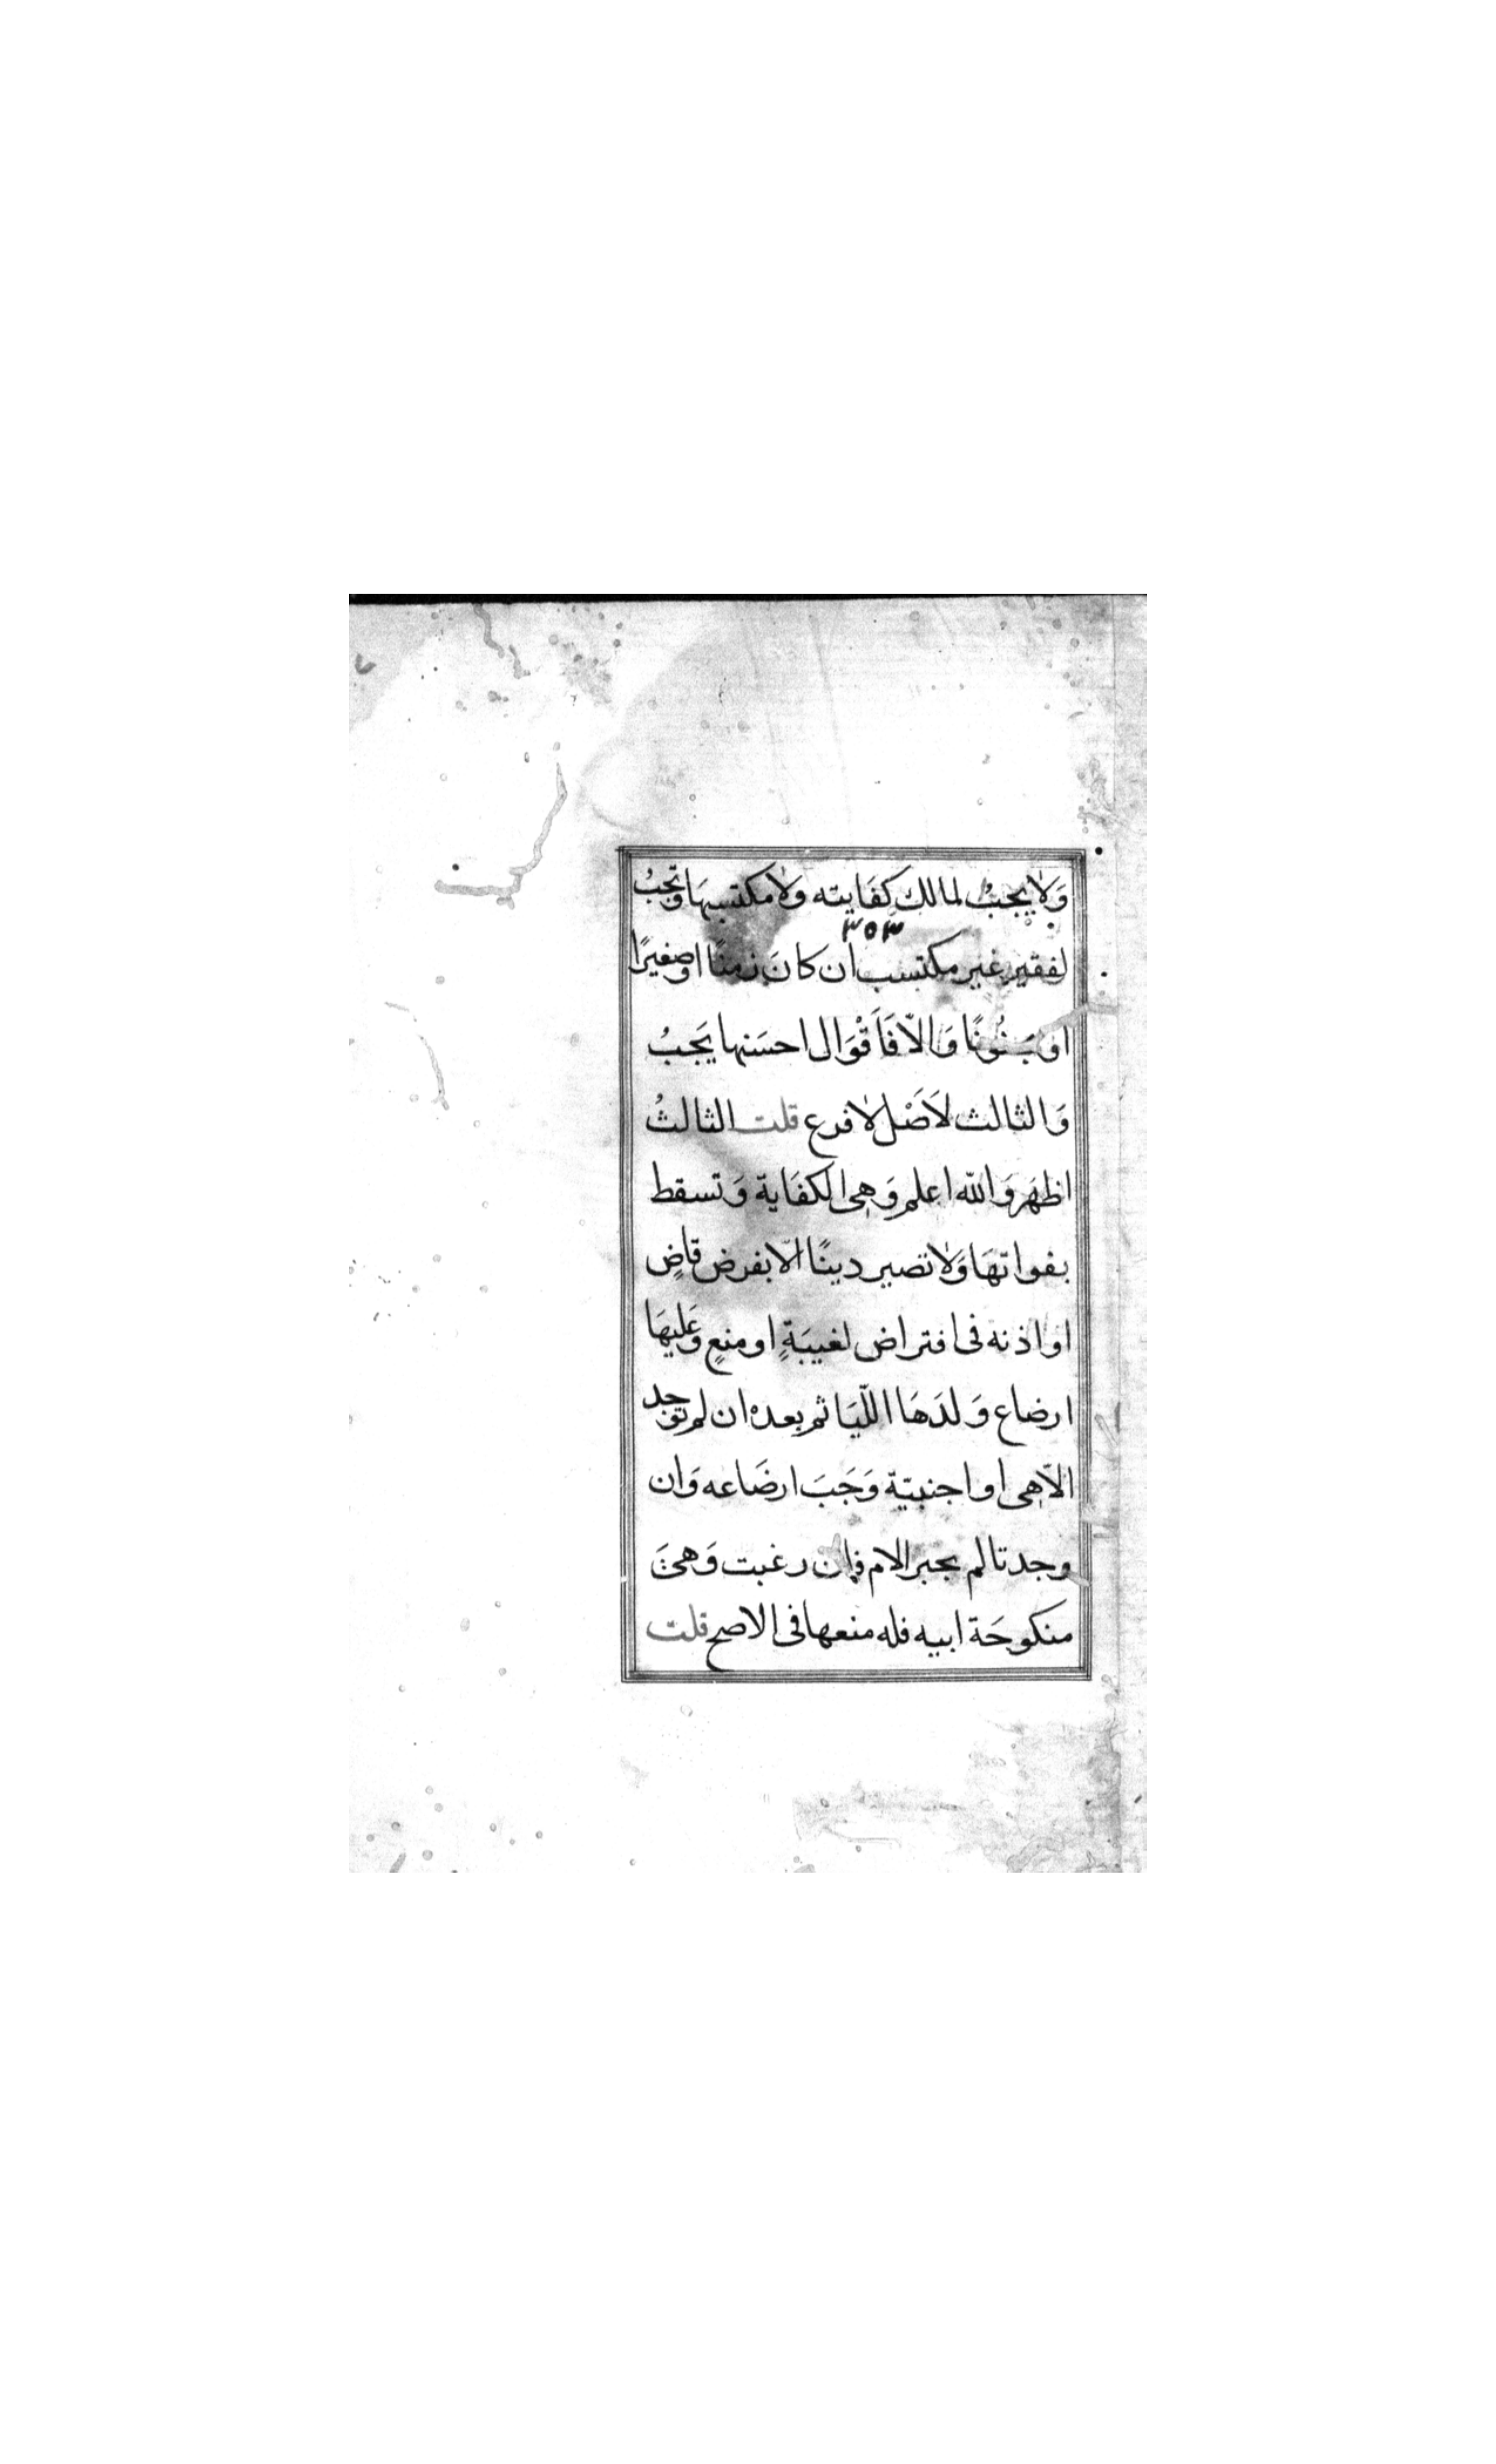 وَلَا يجبُ لمالك كِفَايته وَلَا مكتسبهَا وَتجبُ
٣٥٣
لفقير غير مكتسب ان كانَ زمنًا او صغيرًا
او مَجنُونًا وَالّا فَاَقْوَال احسَنها يَجبُ
وَالثالث لَاصْل لا فرع قلت الثالثُ
اظهَر وَاللّه اعلم وَهِى الكفَاية وَتسقط
بفواتهَا وَلَا تصير دينًا الّا بفرض قاضٍ
او اذنه فى اقتراض لغيبَةٍ او منعٍ وَعَليهَا
ارضاع وَلدَهَا اللّبَا ثم بعده ان لم توجد
الّا هِى او اجنبيّة وَجَبَ ارضَاعه وَان
وجدتا لم يجبر الام فان رغبت وَهىَ
منكوحَة ابيه فله منعها فى الاصح قلت